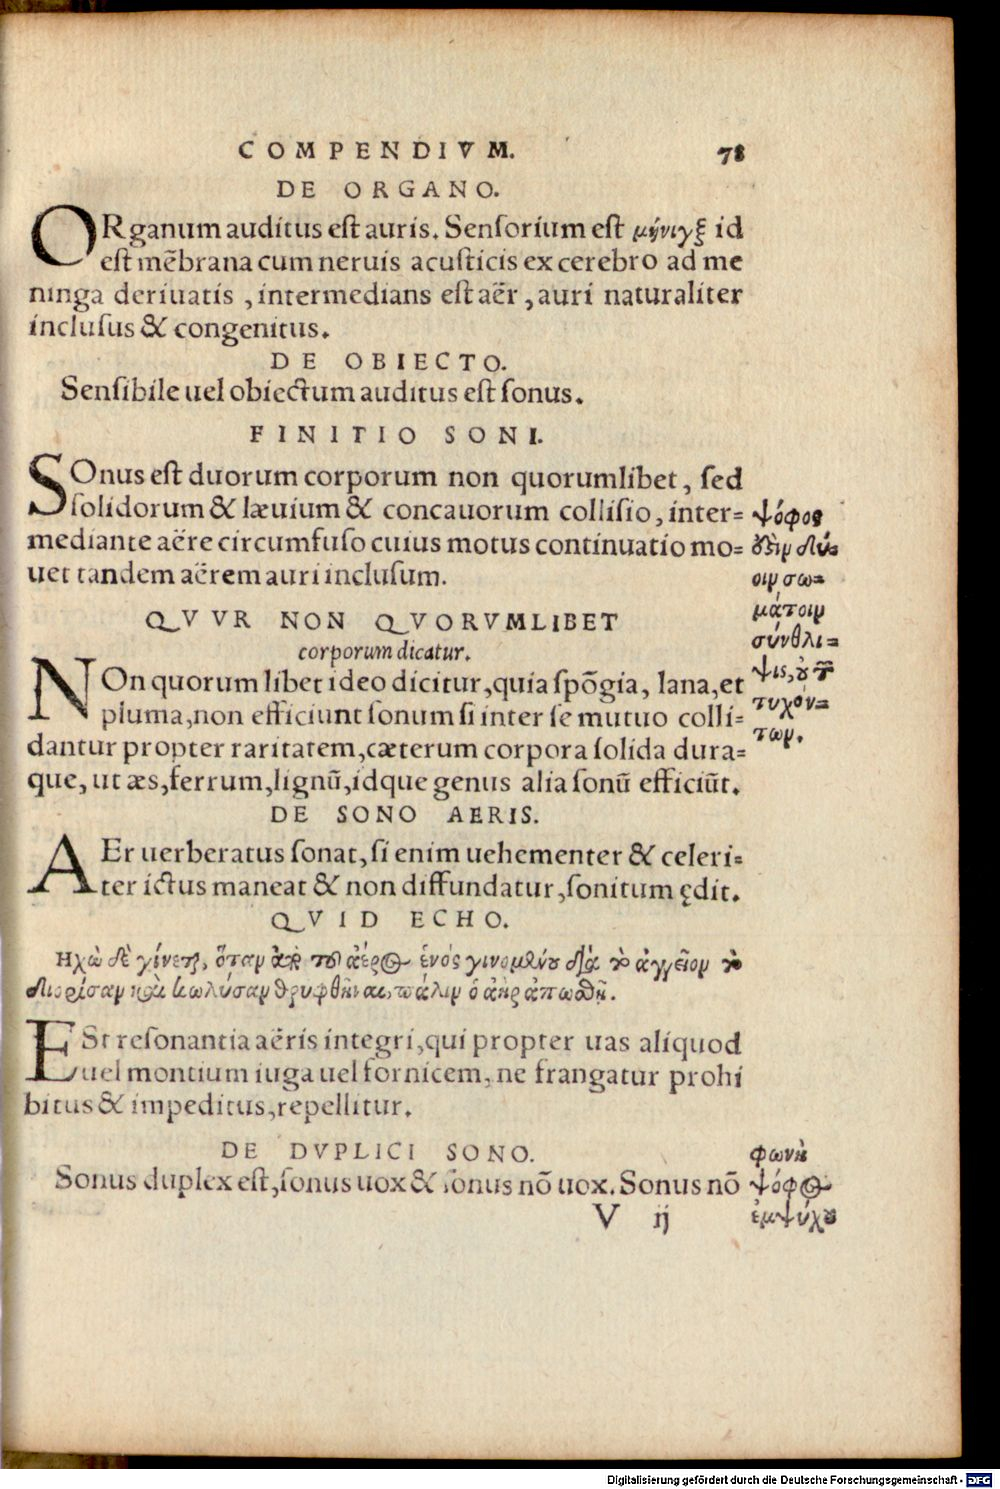 COMPENDIVM. 78
DE ORGANO.
ORganum auditus est auris. Sensorium est μήνιγξ id
est mẽbrana cum neruis acusticis ex cerebro ad me
ninga deriuatis, intermedians est aër, auri naturaliter
inclusus & congenitus.
DE OBIECTO.
Sensibile uel obiectum auditus est sonus.
FINITIO SONI.
SOnus est duorum corporum non quorumlibet, sed
solidorum & læuium & concauorum collisio, inter=
mediante aëre circumfuso cuius motus continuatio mo=
uet tandem aërem auri inclusum.
ψόφος
ἐστὶν δυ=
οιν σω=
μάτοιν
σύνθλι=
ψις, οὐ τῶν
τυχόν=
των.
QVVR NON QVORVMLIBET
corporum dicatur.
NOn quorum libet ideo dicitur, quia spõgia, lana, et
pluma, non efficiunt sonum si inter se mutuo colli=
dantur propter raritatem, cæterum corpora solida dura=
que, ut æs, ferrum, lignũ, idque genus alia sonũ efficiũt.
DE SONO AERIS.
AEr uerberatus sonat, si enim uehementer & celeri=
ter ictus maneat & non diffundatur, sonitum ędit.
QVID ECHO.
Ηχὼ δὲ γίνεται, ὅταν ἀπὸ τοῦ ἀέρος ἑνός γινομένου διὰ τὸ ἀγγεῖον τὸ
διορίσαν καὶ κωλύσαν θρυφθῆναι, πάλιν ὁ ἀὴρ ἀπωσθῇ.
ESt resonantia aëris integri, qui propter uas aliquod
uel montium iuga uel fornicem, ne frangatur prohi
bitus & impeditus, repellitur.
DE DVPLICI SONO.
Sonus duplex est, sonus uox & sonus nõ uox. Sonus nõ
φωνὴ
ψόφος
ἐμψύχου
V ij
Digitalisierung gefördert durch die Deutsche Forschungsgemeinschaft - DFG